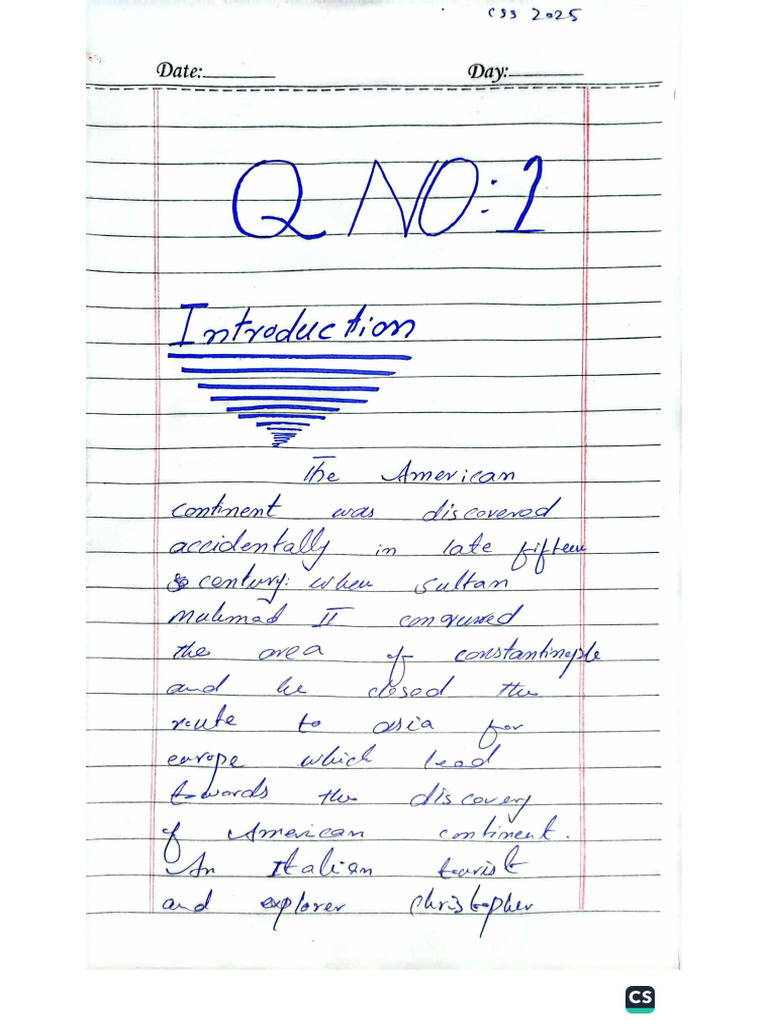 CSS 2025
Date:________ Day:________
Q NO:1
Introduction
The American
continent was discovered
accidentally in late fifteen
century: when Sultan
Muhmad II conqured
the area of constantinople
and he closed the
route to asia for
europe which lead
towards the discovery
of American continent.
An Italian tourist
and explorer christopher
CS